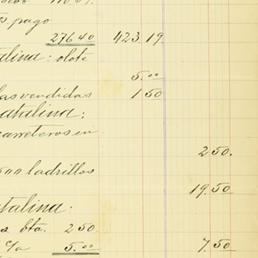 pago
276 40 423.19
alina: olote
5.00
las vendidas 1 50
atalina:
carreteros en
250.
ladrillos
19.50
atalina.
bta. 2 50
c/a 5.00 7.50